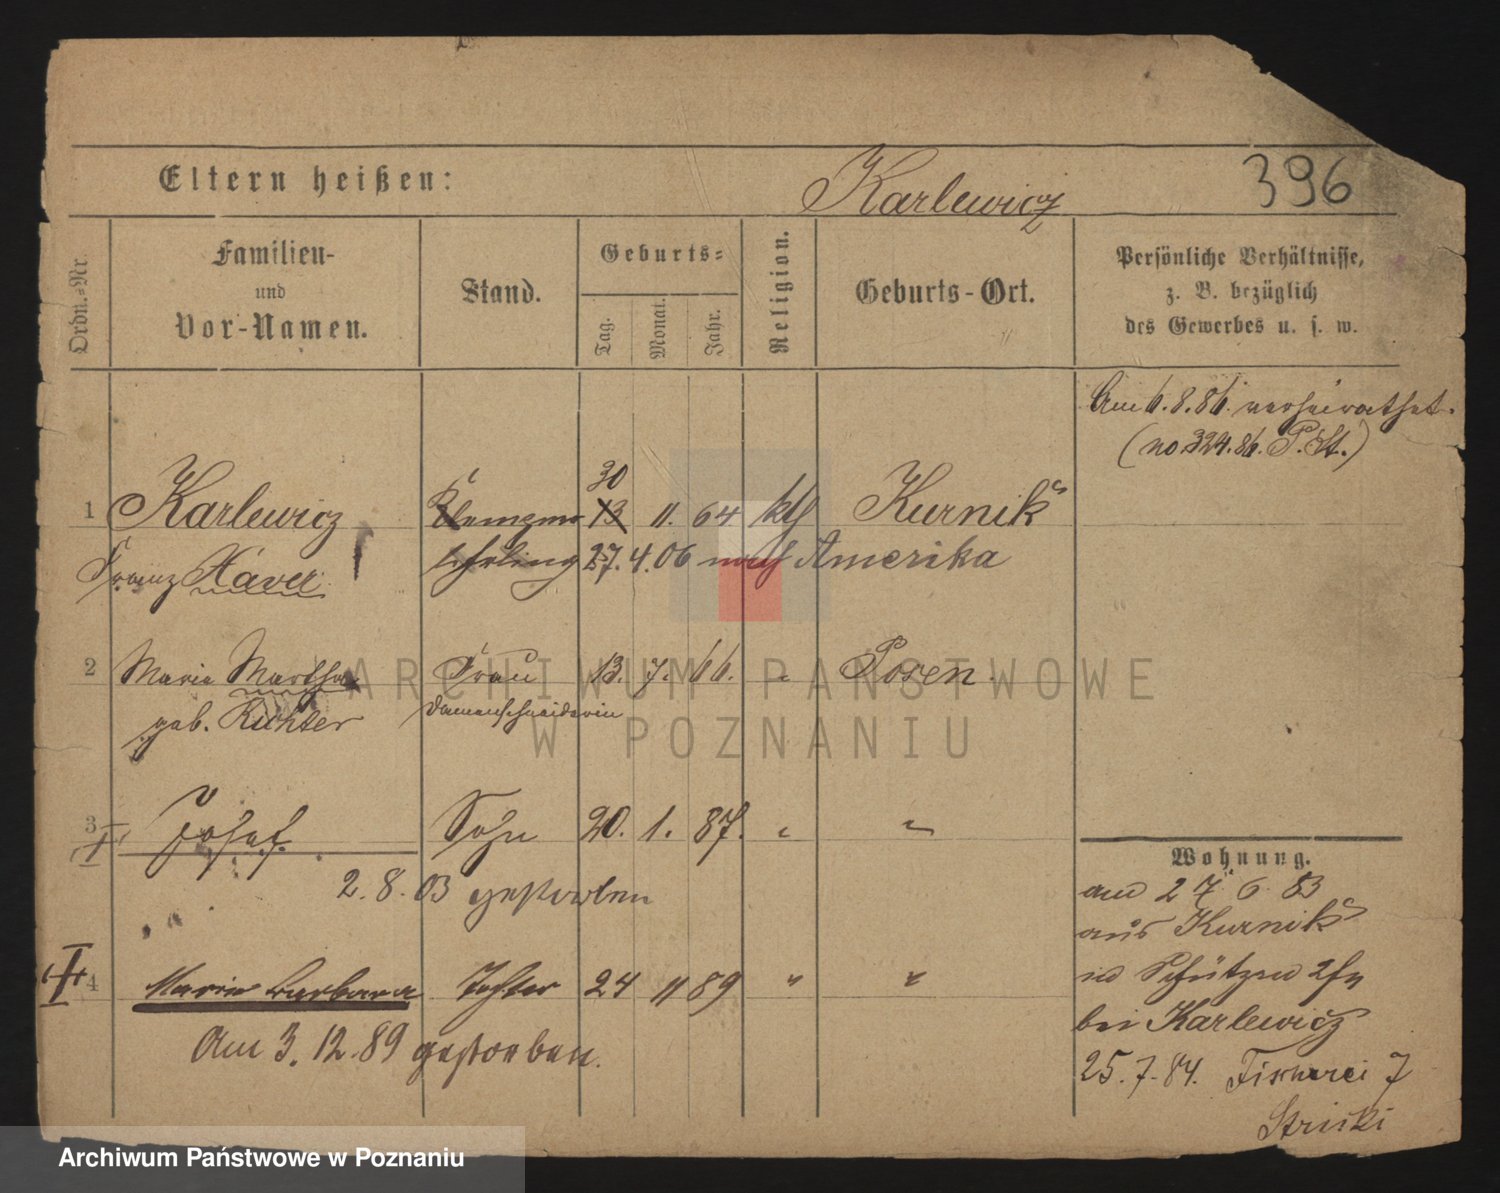 Eltern heißen:
Karlewicz
396
Ordn.-Nr.
Familien-
und
Vor-Namen.
Stand.
Geburts-
Tag.
Monat.
Jahr.
Religion.
Geburts-Ort.
Persönliche Verhältnisse,
z. B. bezüglich
des Gewerbes u. s. w.
Am 6.8.86. verheirathet.
(no. 324.86. P. St.)
30
1 Karlewicz Klempner 13 11. 64 kth Kurnik
Franz Xaver lehrling 27.4.06 nach Amerika
2 Maria Martha Frau 13. 7. 66. " Posen.
geb. Richter Damenschneiderin
3 Josef Sohn 20. 1. 87. " "
2.8.03 gestorben
4 Maria Barbara Tochter 24 11 89 " "
Am 3.12.89 gestorben.
Wohnung.
am 27. 6. 83
aus Kurnik
in Schützen
bei Karlewicz
25.7.84. Fischerei 7
ARCHIWUM PAŃSTWOWE
W POZNANIU
Archiwum Państwowe w Poznaniu